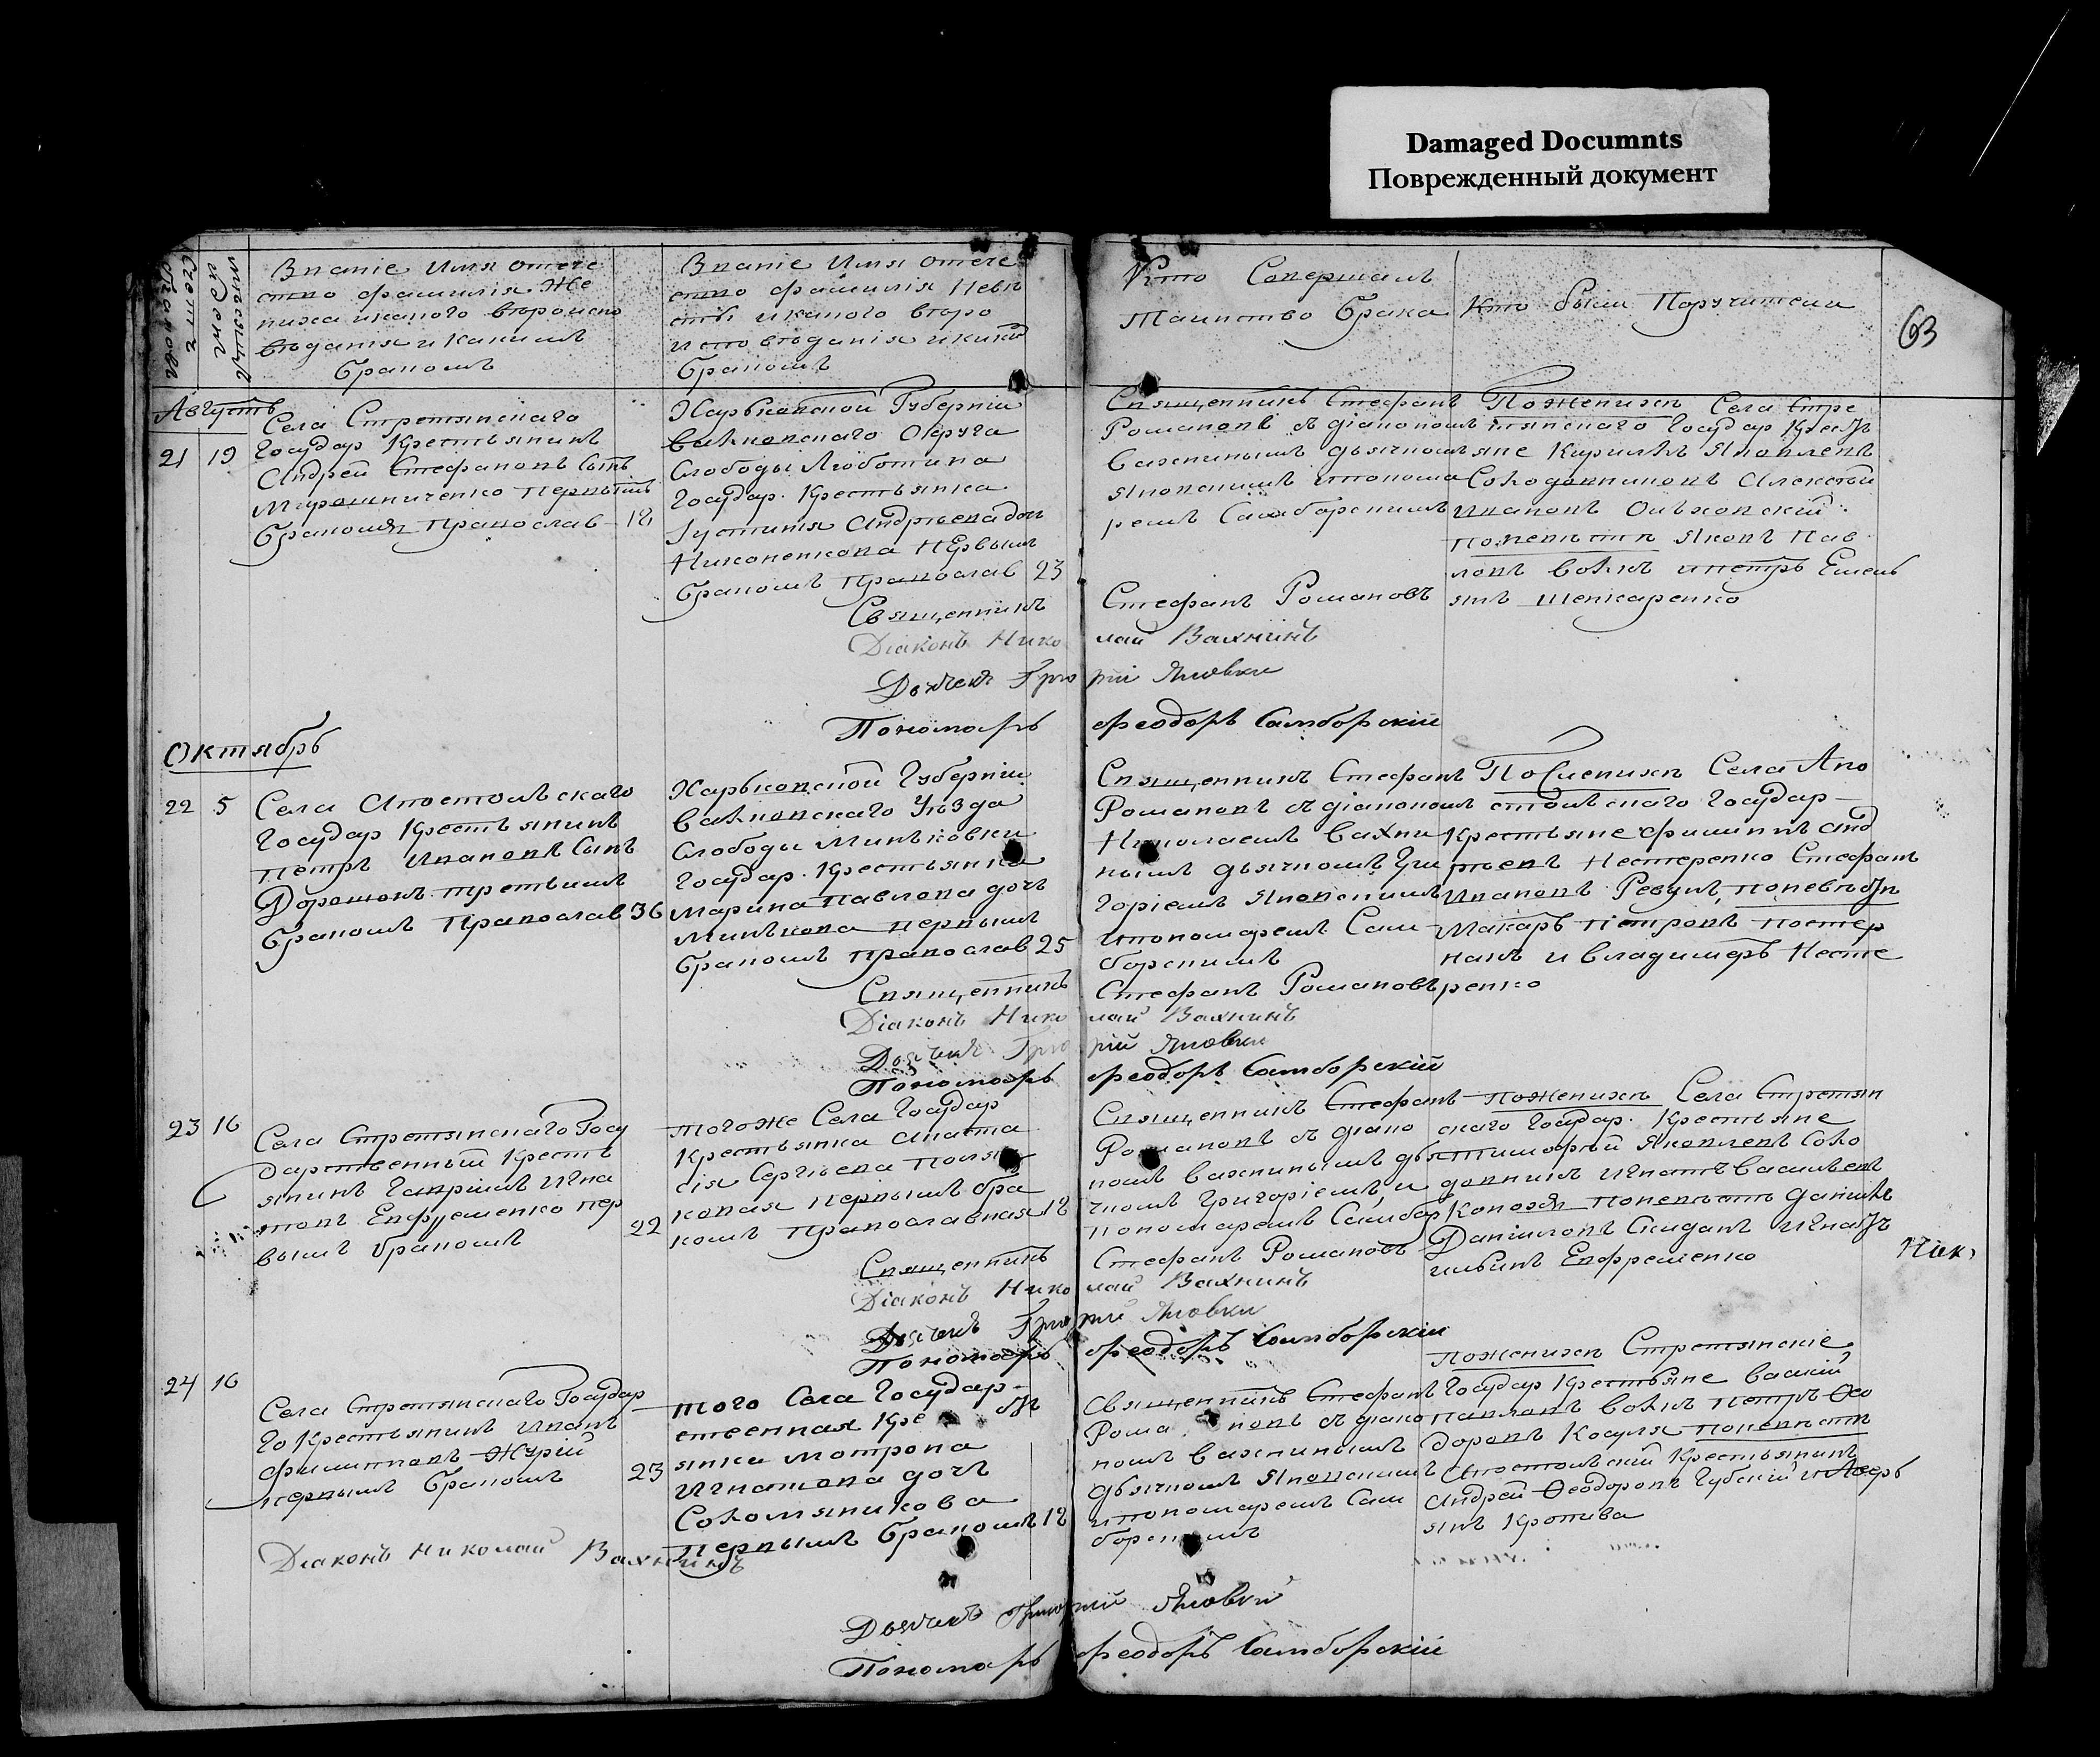 Damaged Documnts
Поврежденный документ
Счетъ браковъ
мѣсяцъ и день
Званіе Имя отече
ство фамилія Же
ниха икакого вѣроиспо
вѣданія и Какимъ
бракомъ
Званіе Имя отече
ство фамилія Невѣ
сты икакого вѣро
исповѣданія икоимъ
бракомъ
Кто Совершалъ
Таинство брака
Кто были Поручители
63
Августъ
21 19
Села Стретянскаго
Государ Крестьянинъ
Андрей Стефановъ Сынъ
Мирошниченко первымъ
бракомъ православ 18
Харьковской Губерніи
валковскаго Округа
Слободы Люботина
Государ. Крестьянка
Іустинія Андреева доч
Никоненкова Первымъ
бракомъ православ 23
Священникъ Стефанъ
Романовъ съ діакономъ
вахнинымъ дьячкомъ
Яновскимъ ипонома
ремъ Самборскимъ
По женихѣ Села Стре
тянскаго Государ Кресть
яне Кирилъ Яковлевъ
Солодовниковъ Алексѣй
Ивановъ Ольховскій
по невѣстѣ Яковъ Пав
ловъ волкъ ипетръ Емель
янъ Шепкаренко
Священникъ Стефанъ Романовъ
Діаконъ Николай Вахнинъ
Дьячекъ Григорій Яновки
Пономарь Феодоръ Самборскій
Октябрь
22 5
Села Апостольскаго
Государ Крестьянинъ
петръ Ивановъ Сынъ
Дорошокъ третьимъ
бракомъ православ 36
Харьковской Губерніи
валковскаго Уѣзда
Слободы Миньковки
Государ. Крестьянка
Марина Павлова дочь
Минькова первымъ
бракомъ православ 25
Священникъ Стефанъ
Романовъ съ діакономъ
Николаемъ вахни
нымъ дьячкомъ Гри
горіемъ Яновскимъ
ипономаремъ Сам
борскимъ
По Женихѣ Села Апо
стольскаго Государ
Крестьяне Филиппъ Анд
реевъ Нестеренко Стефанъ
Ивановъ Ревуцъ, поневѣстѣ
Макаръ Петровъ постер
накъ и владимеръ Несте
ренко
Священникъ Стефанъ Романовъ
Діаконъ Николай Вахнинъ
Дьячекъ Григорій Яновки
Пономарь Феодоръ Самборскій
23 16
Села Стретянскаго Госу
дарственный Кресть
янинъ Гавріилъ Игна
товъ Ефременко пер
вымъ бракомъ 22
тогоже Села Государ
Крестьянка Анаста
сія Сергѣева поля
ковая первымъ бра
комъ православная 18
Священникъ Стефанъ
Романовъ съ діако
номъ вахнинымъ дья
чкомъ Григоріемъ, и
пономаремъ Самбор
по женихѣ Села Стретян
скаго Государ. Крестьяне
Тимофѣй Яковлевъ Соло
довникъ Игнатъ васильевъ
Коноз по невѣстѣ даніилъ
Даніиловъ Скиданъ игнатъ
ильинъ Ефременко
Священникъ Стефанъ Романовъ
Діаконъ Николай Вахнинъ
Дьячекъ Григорій Яновки
Пономарь Феодоръ Самборскій
Ник
24 16
Села Стретянскаго Государ
го Крестьянинъ Иванъ
Филиповъ Журій
первымъ бракомъ 23
того Села Государ
ственная Кресть
янка Мотрона
Игнатова дочь
Соломяникова
первымъ бракомъ 18
Священникъ Стефанъ
Романовъ съ діако
номъ вахнинымъ
дьячкомъ Яновскимъ
ипономаремъ Сам
борскимъ
по женихѣ Стретянскіе
Государ Крестьяне васілій
павловъ волкъ петръ Ѳео
доровъ Косуля по невѣстѣ
Апостольскій Крестьянинъ
Андрей Ѳеодоровъ Губскій и
янъ Кропива
Діаконъ Николай Вахнинъ
Дьячекъ Григорій Яновкій
Пономарь Феодоръ Самборскій